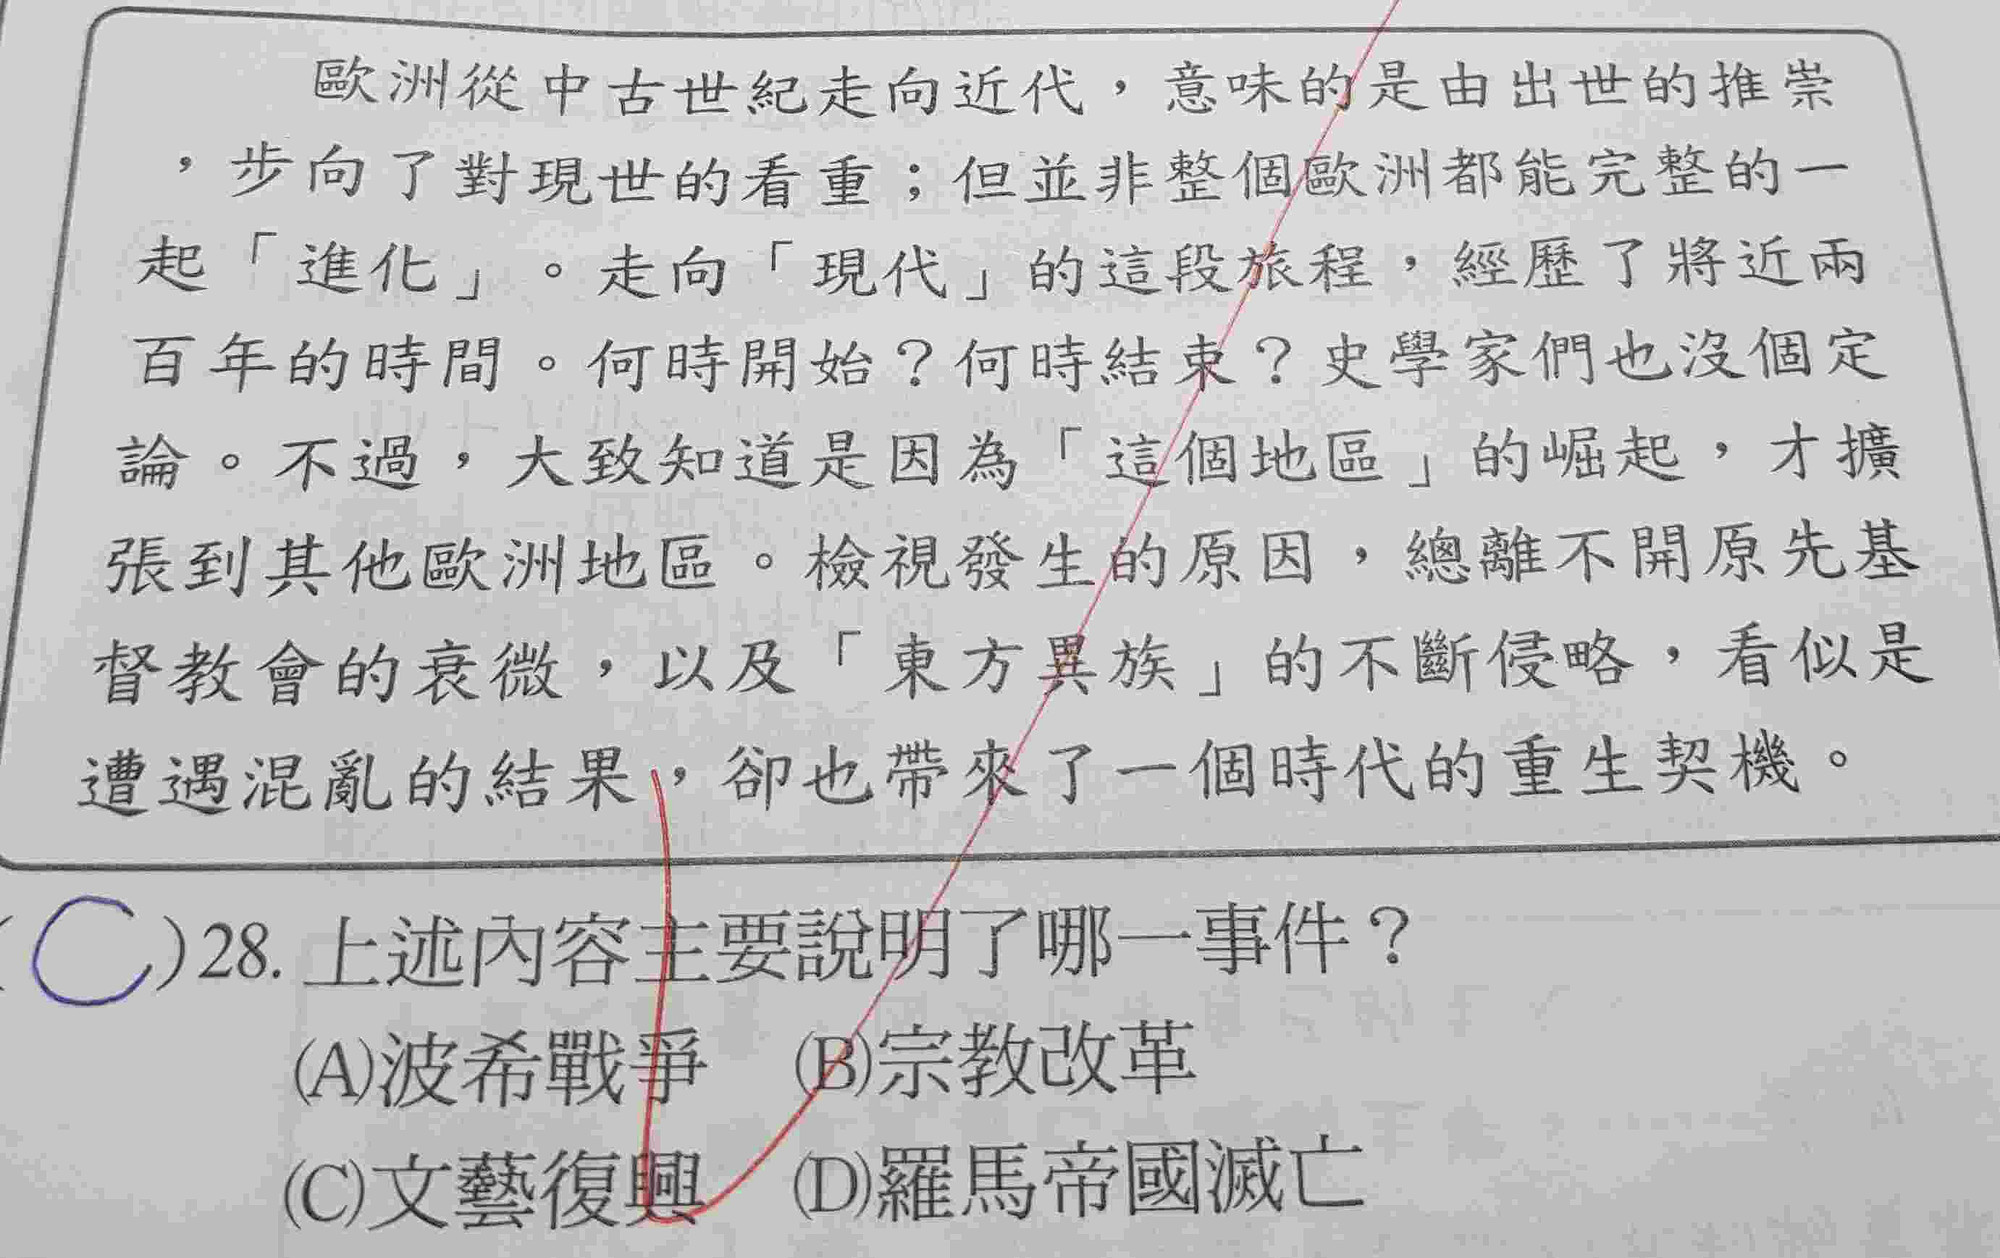 歐洲從中古世紀走向近代，意味的是由出世的推崇
，步向了對現世的看重；但並非整個歐洲都能完整的一
起「進化」。走向「現代」的這段旅程，經歷了將近兩
百年的時間。何時開始？何時結束？史學家們也沒個定
論。不過，大致知道是因為「這個地區」的崛起，才擴
張到其他歐洲地區。檢視發生的原因，總離不開原先基
督教會的衰微，以及「東方異族」的不斷侵略，看似是
遭遇混亂的結果，卻也帶來了一個時代的重生契機。
(C)28.上述內容主要說明了哪一事件？
(A)波希戰爭 (B)宗教改革
(C)文藝復興 (D)羅馬帝國滅亡